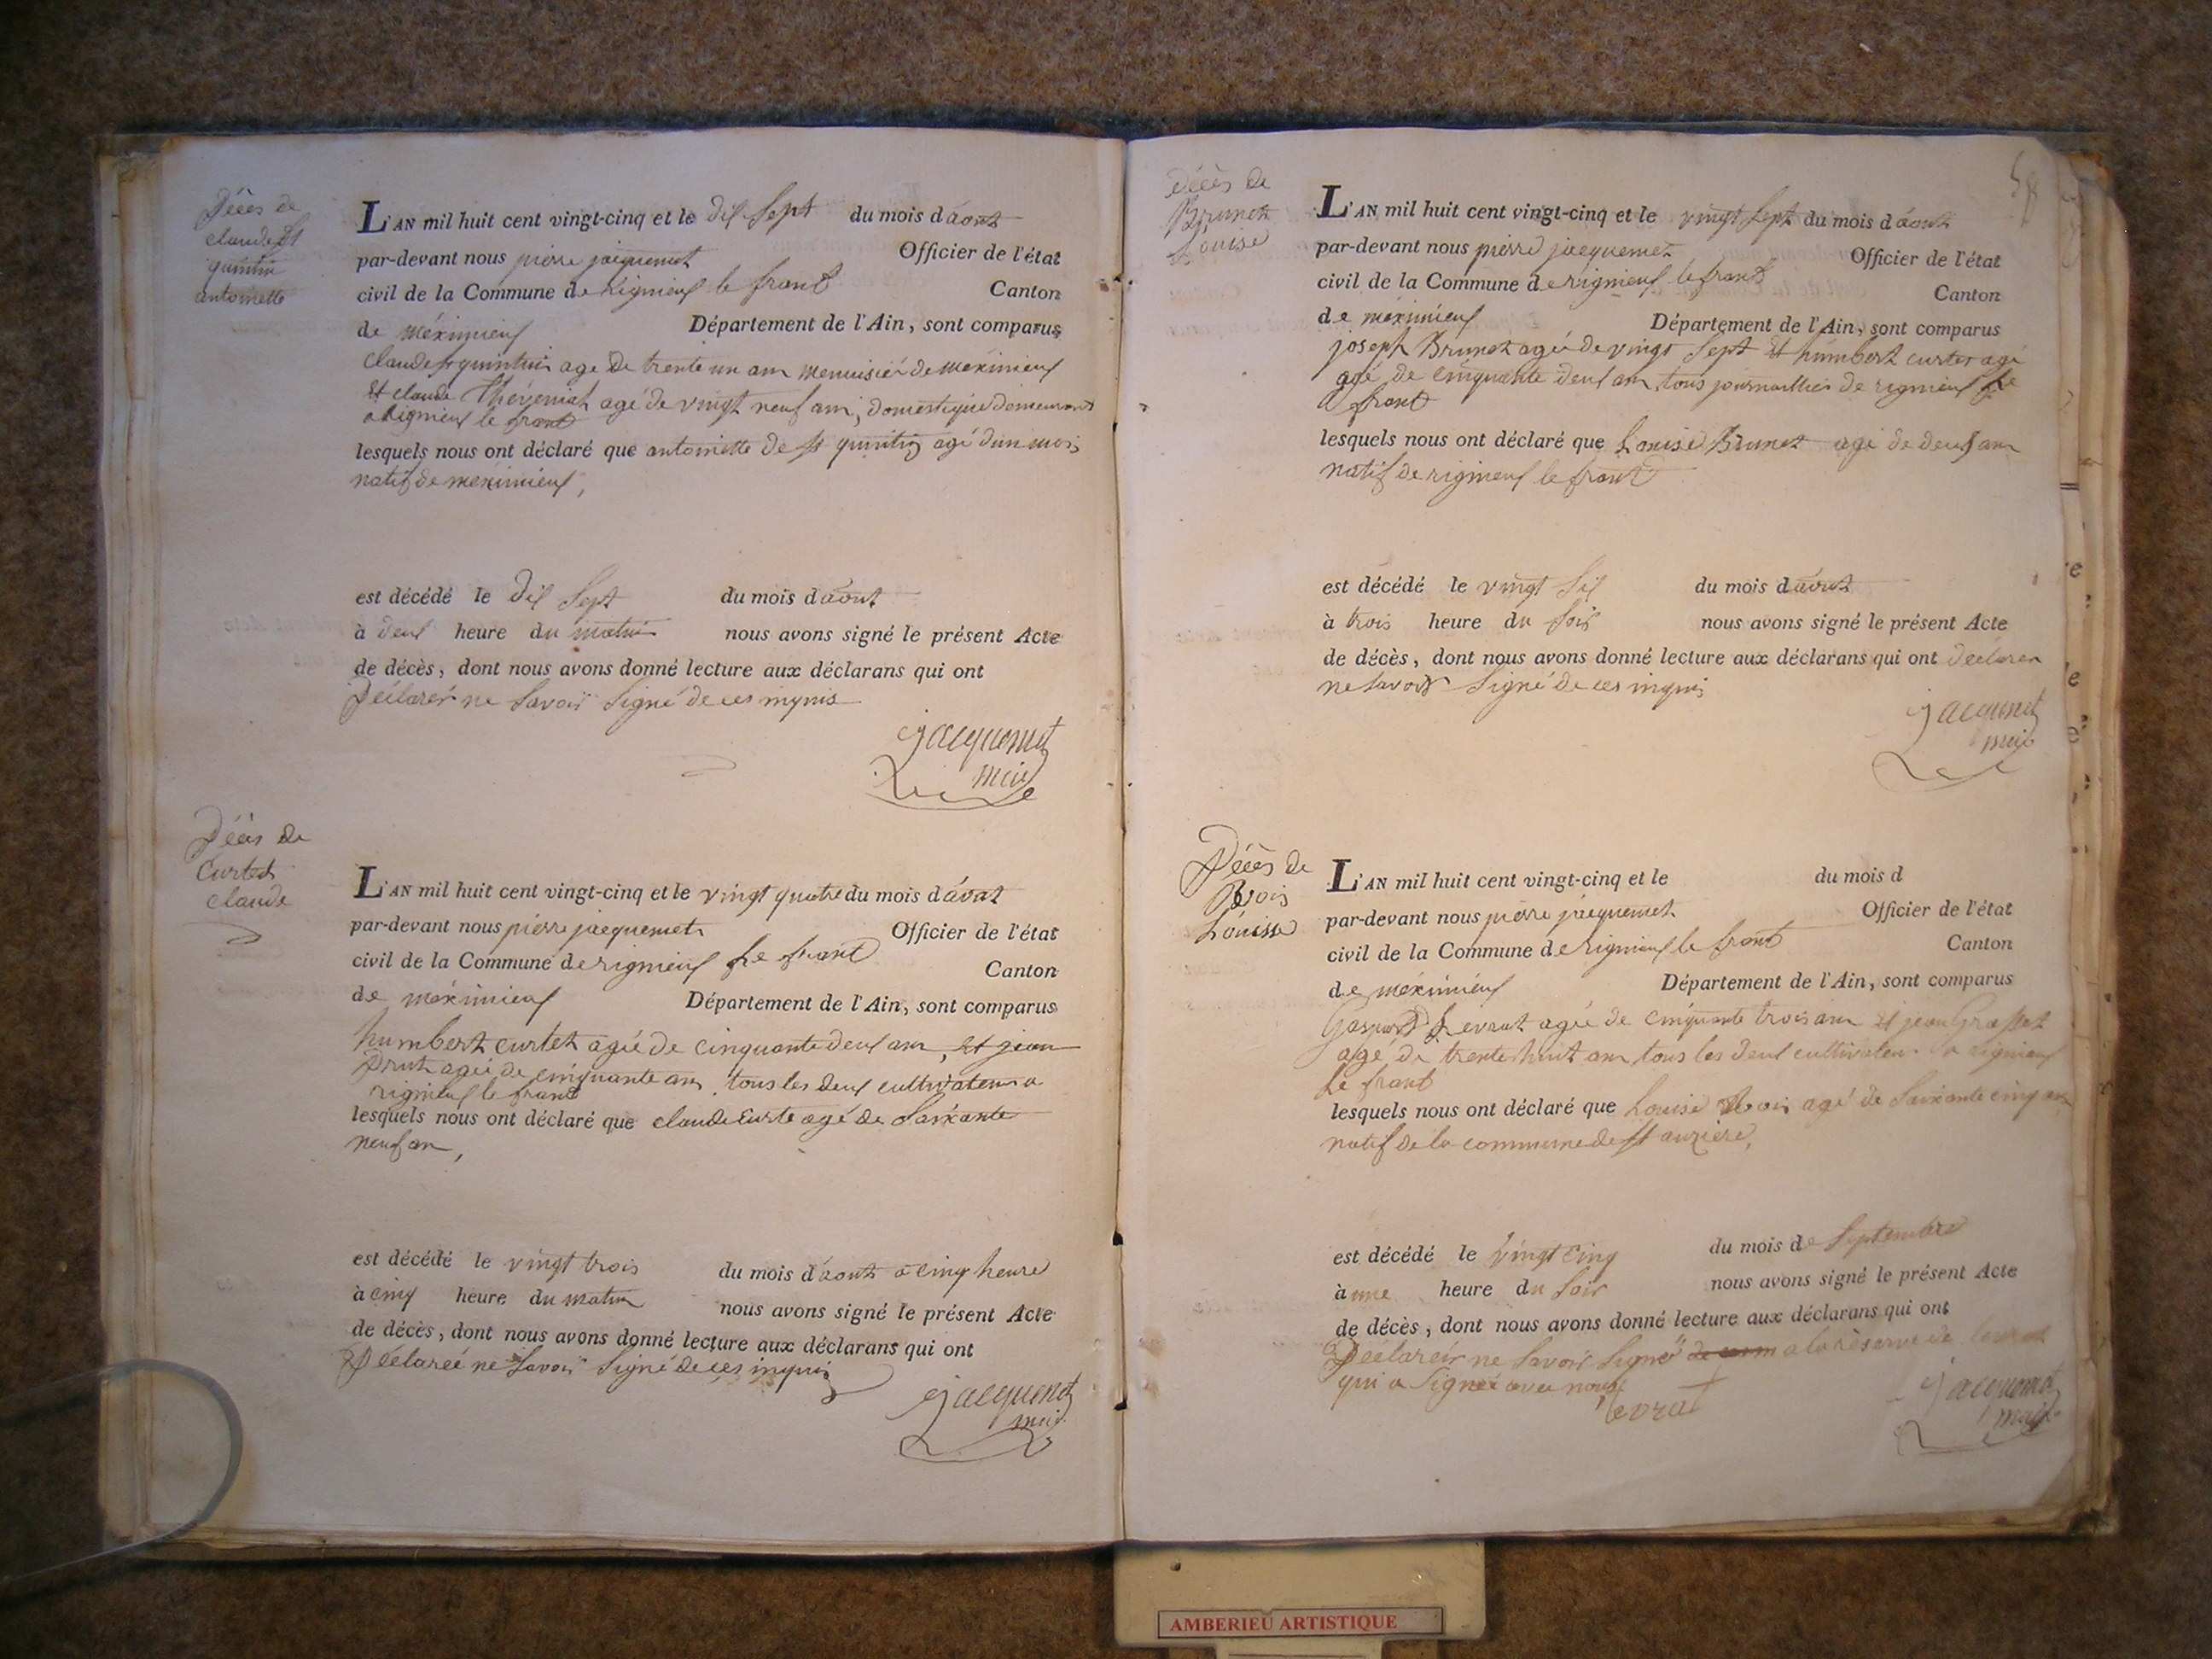 Décès de
claude St
quintin
antoinette
L'AN mil huit cent vingt-cinq et le dix Sept du mois d'aout
par-devant nous pierre jacquemet Officier de l'état
civil de la Commune de rignieux le franc Canton
de méximieux Département de l'Ain, sont comparus
claude st quintin age de trente un an menuisier de meximieux
Et claude Théveniat agé de vingt neuf an, domestique demeurant
a Rignieux le franc
lesquels nous ont déclaré que antoinette de st quintin agé d'un mois
natif de meximieux,
est décédé le dix Sept du mois d'aout
à deux heure du matin nous avons signé le présent Acte
de décès, dont nous avons donné lecture aux déclarans qui ont
Déclarer ne Savoir Signé de ces inquis
jacquemet
maire
Décès de
Curtet
claude
L'AN mil huit cent vingt-cinq et le vingt quatre du mois d'aout
par-devant nous pierre jacquemet Officier de l'état
civil de la Commune de rignieux le franc Canton
de méximieux Département de l'Ain, sont comparus
humbert curtet agée de cinquante deux an, et jean
Drut agée de cinquante an tous les deux cultivateur a
rignieux le franc
lesquels nous ont déclaré que claude curte agé de Soixante
neuf an,
est décédé le vingt trois du mois d'aout a cinq heure
à cinq heure du matin nous avons signé le présent Acte
de décès, dont nous avons donné lecture aux déclarans qui ont
Déclareé ne Savoir Signé de ces inquis
jacquemet
maire
Décès de
Brunet
Louise
L'AN mil huit cent vingt-cinq et le vingt Sept du mois d'aout
par-devant nous pierre jacquemet Officier de l'état
civil de la Commune de rignieux le franc Canton
de méximieux Département de l'Ain, sont comparus
joseph Brunet agée de vingt Sept Et humbert curtet agé
agé de cinquante deux an tous journallier de rignieux le
franc
lesquels nous ont déclaré que Louise Brunet agé de deux an
natif de rignieux le franc
est décédé le vingt Six du mois d'aout
à trois heure du Soir nous avons signé le présent Acte
de décès, dont nous avons donné lecture aux déclarans qui ont déclarer
ne Savoir Signé de ces inquis
jacquemet
maire
Décès de
Louisse
L'AN mil huit cent vingt-cinq et le du mois d
par-devant nous pierre jacquemet Officier de l'état
civil de la Commune de Rignieux le franc Canton
de méximieux Département de l'Ain, sont comparus
Gaspard Levrat agée de cinquante trois an Et jean Grasset
agé de trente huit an tous les deux cultivateur a rignieux
le franc
lesquels nous ont déclaré que Louise agé de Soixante cinq an
natif de la commune de St
est décédé le vingt cinq du mois de Septembre
à une heure du Soir nous avons signé le présent Acte
de décès, dont nous avons donné lecture aux déclarans qui ont
Déclareir ne Savoir Signé a la réserve de levrat
qui a Signée avec nous
levrat
jacquemet
maire
AMBERIEU ARTISTIQUE